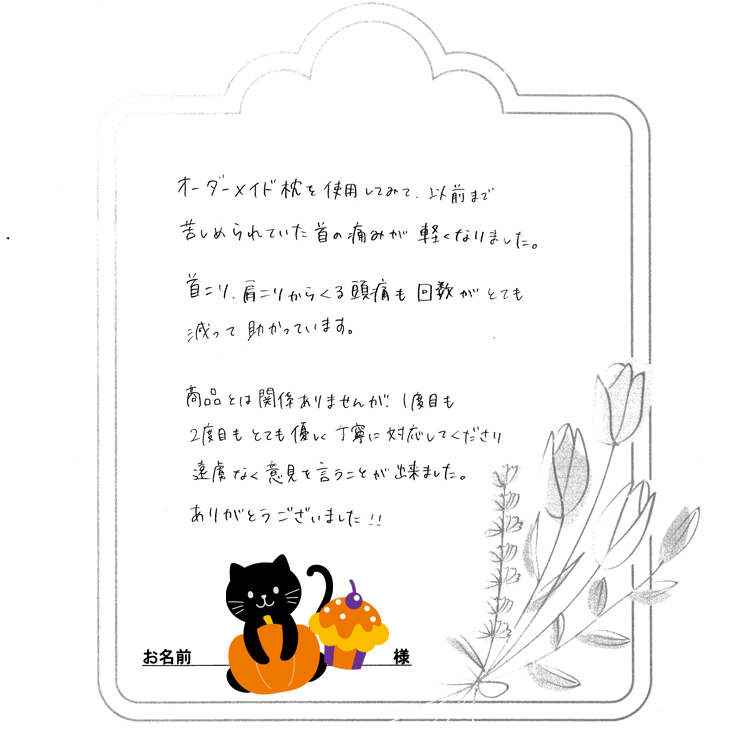 オーダーメイド枕を使用してみて、以前まで
苦しめられていた首の痛みが軽くなりました。
首こり、肩こりからくる頭痛も回数がとても
減って助かっています。
商品とは関係ありませんが、1度目も
2度目もとても優しく丁寧に対応してくださり
遠慮なく意見を言うことが出来ました。
ありがとうございました!!
お名前 様